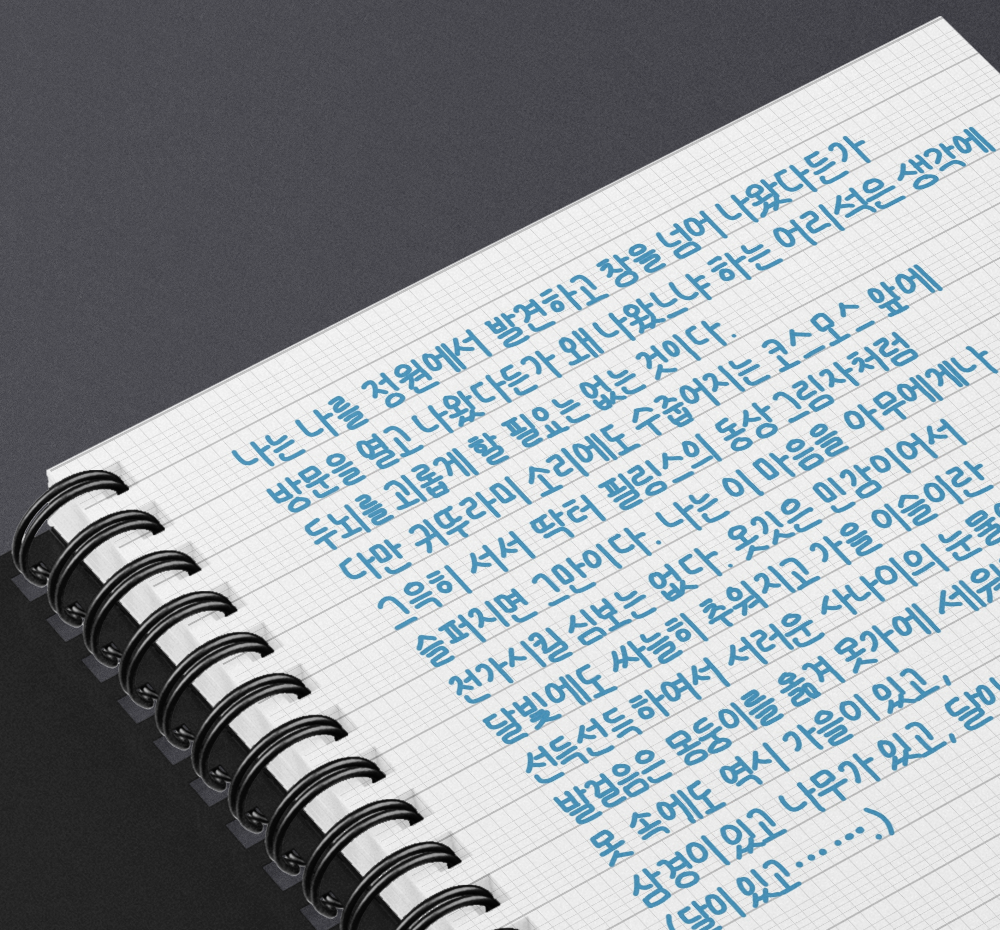 나는 나를 정원에서 발견하고 창을 넘어 나왔다든가
방문을 열고 나왔다든가 왜 나왔느냐 하는 어리석은 생각에
두뇌를 괴롭게 할 필요는 없는 것이다.
다만 귀뚜라미 소리에도 수줍어지는 코스모스 앞에
그윽히 서서 딱터 필링스의 동상 그림자처럼
슬퍼지면 그만이다. 나는 이 마음을 아무에게나
전가시킬 심보는 없다. 옷깃은 민감이어서
달빛에도 싸늘히 추워지고 가을 이슬이란
선득선득하여서 서러운 사나이의 눈물
발걸음은 몽둥이를 옮겨 못가에 세워
못 속에도 역시 가을이 있고,
삼경이 있고 나무가 있고, 달이
(달이 있고…….)